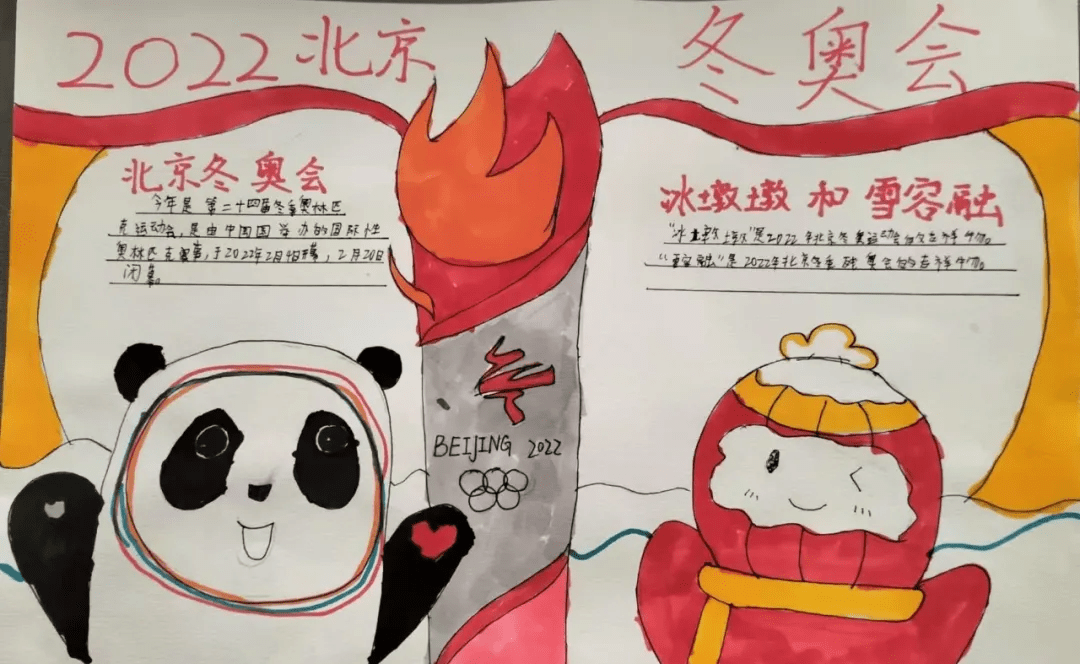 2022北京 冬奥会
北京冬奥会
今年是第二十四届冬季奥林匹
克运动会,是由中国国举办的国际性
奥林匹克赛事,于2022年2月4日开幕,2月20日
闭幕。
冰墩墩和雪容融
"冰墩墩"是2022年北京冬奥运动会的吉祥物。
"雪容融"是2022年北京冬季残奥会的吉祥物。
BEIJING 2022